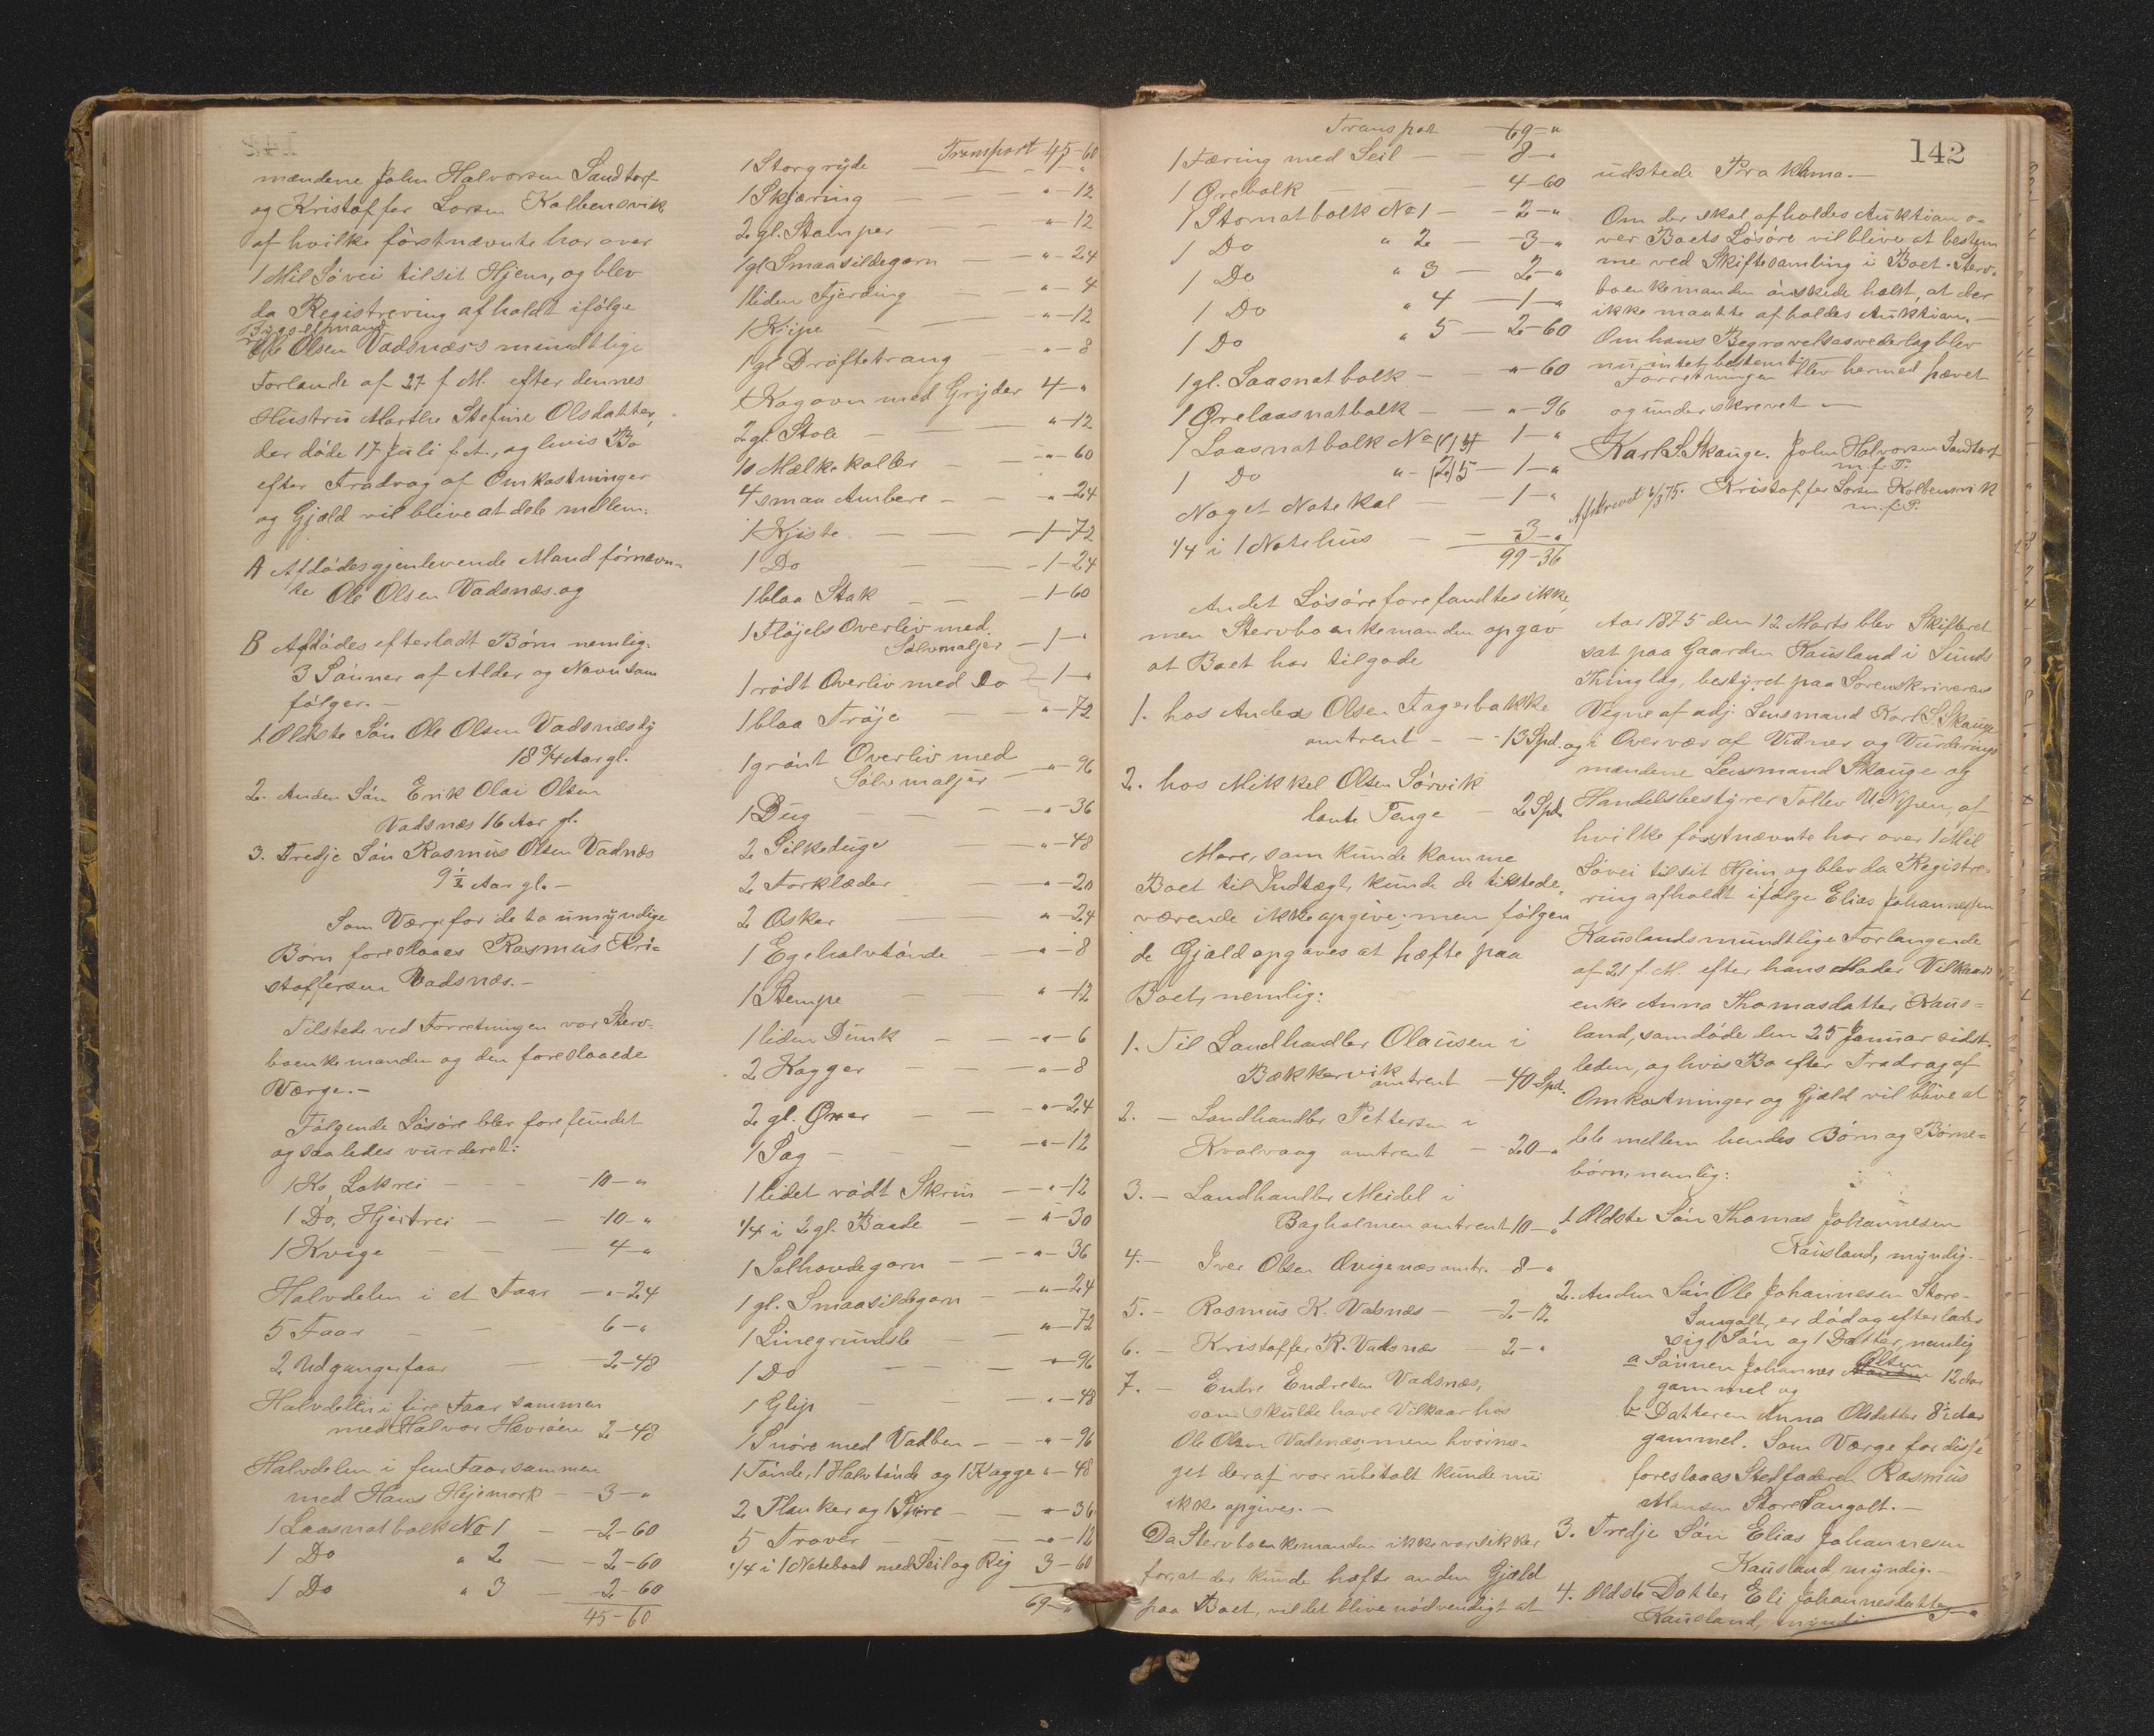 mændene John Halvorsen Sandtorf
og Kristoffer Larsen Kolbensvik
af hvilke førstnævnte har over
1 Mil Søvei til sit Hjem, og blev
da Registrering afholdt ifølge
Bygselmand
Ole Olsen Vadsnæs's mundtlige
Forlande af 27 f. M. efter dennes
Hustru Marthe Stefine Olsdatter,
der døde 17 Juli f. A., og hvis Bo
efter Fradrag af Omkostninger
og Gjæld vil blive at dele mellem:
A Afdødes gjenlevende Mand førnævn-
te Ole Olsen Vadsnæs. og
B Afdødes efterladt Børn nemlig:
3 Sønner af Alder og Navn som
følger. -
1. Ældste Søn Ole Olsen Vadsnæs ty
18 3/4 Aar gl.
2. Anden Søn Erik Olai Olsen
Vadsnæs 16 Aar gl.
3. Tredje Søn Rasmus Olsen Vadnæs
9 1/2 Aar gl. -
Som Værge for de to umyndige
Børn foreslaaes Rasmus Kri-
stoffersen Vadsnæs. -
Tilstede ved Forretningen var Sterv-
boenkemanden og den foreslaaede
Værge. -
Følgende Løsøre blev forefundet
og saaledes vurderet:
1 Ko, Lakrei - - 10 - "
1 Do, Hjertrei - - 10 - "
1 Kvige - - 4 - "
Halvdelen i et Faar - " - 24
5 Faar - - 6 - "
2 Udgangerfaar - 2 - 48
Halvdelen i fire Faar sammen
med Halvor Hævrøen 2 - 48
Halvdelen i fem Faar sammen
med Hans Hejemark - 3 - "
1 Laasnotbolk No 1 - 2 - 60
1 Do " 2 - 2 - 60
1 Do " 3 - 2 - 60
45 - 60
Transport 45 - 60
1 Storgryde - - 1 - "
1 Skjæring - - " - 12
2 gl. Stamper - - " - 12
1 gl Smaasildegarn - - " - 24
1 liden Fjerding - - " - 4
1 Kipe - - " - 12
1 gl Drøftetraug - " - 8
1 Kogovn med Gryder 4 - "
2 gl. Stole - - " - 12
10 Mælkekoller - - " - 60
4 smaa Ambere - - " - 24
1 Kiste - - 1 - 72
1 Do - - 1 - 24
1 blaa Stak - - 1 - 60
1 Fløjels Overliv med
Sølvmaljer - 1 - "
1 rødt Overliv med Do - 1 - "
1 blaa Trøje - - " - 72
1 grønt Overliv med
Sølvmaljer - " - 96
1 Dug - - " - 36
2 Silkeduge - " - 48
2 Forklæder - " - 20
2 Øskar - " - 24
1 Egehalvtønde - " - 8
1 Stempe - - " - 12
1 liden Dunk - - " - 6
2 Kagger - - " - 8
2 gl. Øxer - - " - 24
1 Sag - - " - 12
1 lidet rødt Skrin - - " - 12
1/4 i 2 gl. Baade - " - 30
1 Solhovdegarn - - " - 36
1 gl. Smaasildegarn - " - 24
1 Linegrundsle - - " - 72
1 Do - - " - 96
1 Glip - - " - 48
1 Snøre med Vadben - - " - 96
1 Tønde, 1 Halvtønde og 1 Kagge " - 48
2 Planker og 1 Skøre - " - 36
5 Traver - - " - 12
1/4 i 1 Notebaad med Seil og Rig 3 - 60
69 - "
Transport 69 - "
1 Færing med Seil - - 8 - "
1 Ørebolk - - 4 - 60
1 Stornotbolk No 1 - - 2 - "
1 Do " 2 - 3 - "
1 Do " 3 - 2 - "
1 Do " 4 - 1 - "
1 Do " 5 - 2 - 60
1 gl. Laasnotbolk - - " - 60
1 Ørelaasnotbolk - - " - 96
1 Laasnotbolk No (1) 4 1 - "
1 Do " - (2) 5 - 1 - "
Noget Notekol - 1 - "
1/4 i 1 Notehus - - 3 - "
99 - 36
Andet Løsøre forefandtes ikke,
men Stervboenkemanden opgav
at Boet har tilgode
1. hos Anders Olsen Fagerbakke
omtrent - - 13 Spd.
2. hos Mikkel Olsen Sørvik
laante Penge - 2 Spd.
Mere, som kunde komme
Boet til Indtægt, kunde de tilstede-
værende ikke opgive; men følgen
de Gjæld opgaves at hæfte paa
Boet, nemlig:
1. Til Landhandler Olausen i
Bækkervik omtrent - 40 Spd.
2. - Landhandler Pettersen i
Kvalvaag omtrent - 20 - "
3. - Landhandler Meidel i
Bagholmen omtrent 10 - "
4. - Iver Olsen Øvigenæs omtr. - 8 - "
5. - Rasmus K. Vadsnæs - - 2 - 12
6. - Kristoffer R. Vadsnæs - 2 - "
7. - Endre Endresen Vadsnæs,
som skulde have Vilkaar hos
Ole Olsen Vadsnæs; men hvorme-
get deraf var ubetalt kunde nu
ikke opgives. -
Da Stervboenkemanden ikke var sikker
for, at der kunde hæfte anden Gjæld
paa Boet, vil det blive nødvendigt at
142
udstede Proklama. -
Om der skal afholdes Auktion o-
ver Boets Løsøre vil blive at bestem
me ved Skiftesamling i Boet. Sterv-
boenkemanden ønskede helst, at der
ikke maatte afholdes Auktion. -
Om hans Begravelsesvederlag blev
nu intet bestemt.
Forretningen blev hermed hævet
og underskrevet -
Karl S. Skauge. John Halvorsen Sandtorf
m. f. P.
Afskrevet 6/3 75. Kristoffer Larsen Kolbensvik
m. f. P.
Aar 1875 den 12 Marts blev Skifteret
sat paa Gaarden Kausland i Sunds
Thinglag, bestyret paa Sorenskriverens
Vegne af adj. Lensmand Karl S. Skauge
og i Overvær af Vidner og Vurderings
mændene Lensmand Skauge og
Handelsbestyrer Tollev Nypen, af
hvilke førstnævnte har over 1 Mil
Søvei til sit Hjem og blev da Registre-
ring afholdt ifølge Elias Johannessen
Kauslands mundtlige Forlangende
af 21 f. M. efter hans Moder Vilkaars
enke Anna Thomasdatter Kaus-
land, som døde den 25 Januar sidst-
leden, og hvis Bo efter Fradrag af
Omkostninger og Gjæld vil blive at
dele mellem hendes Børn og Børne-
børn, nemlig:
1. Ældste Søn Thomas Johannesen
Kausland, myndig. -
2. Anden Søn Ole Johannesen Store-
Sangolt, er død og efterlader
sig 1 Søn og 1 Datter, nemlig
a Sønnen Johannes Olsen 12 Aar
gammel og
b Datteren Anna Olsdatter 8 1/2 Aar
gammel. Som Værge for disse
foreslaaes Stedfaderen Rasmus
Monsen Store Sangolt. -
3. Tredje Søn Elias Johannesen
Kausland, myndig. -
4. Ældste Datter Eli Johannesdatter
Kausland, myndi